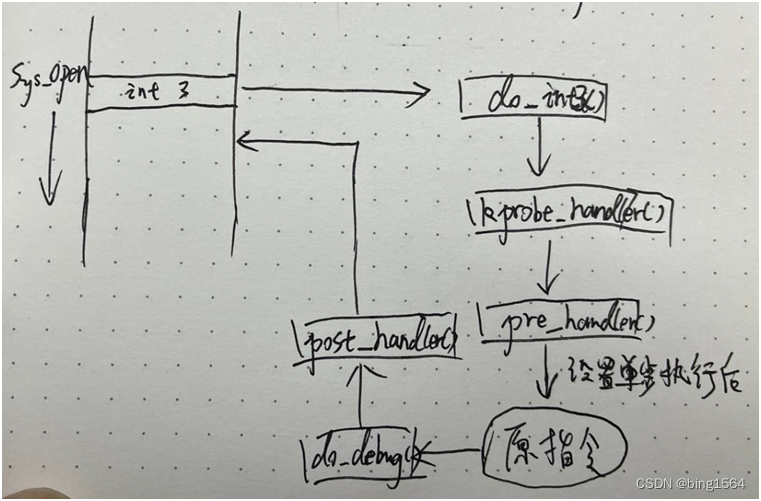 sys_open
int 3
do_int3()
kprobe_handler()
pre_handler()
设置单步执行后
原指令
do_debug()
post_handler()
CSDN @bing1564